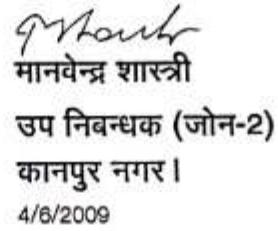 मानवेन्द्र शास्त्री
उप निबन्धक (जोन-2)
कानपुर नगर।
4/6/2009